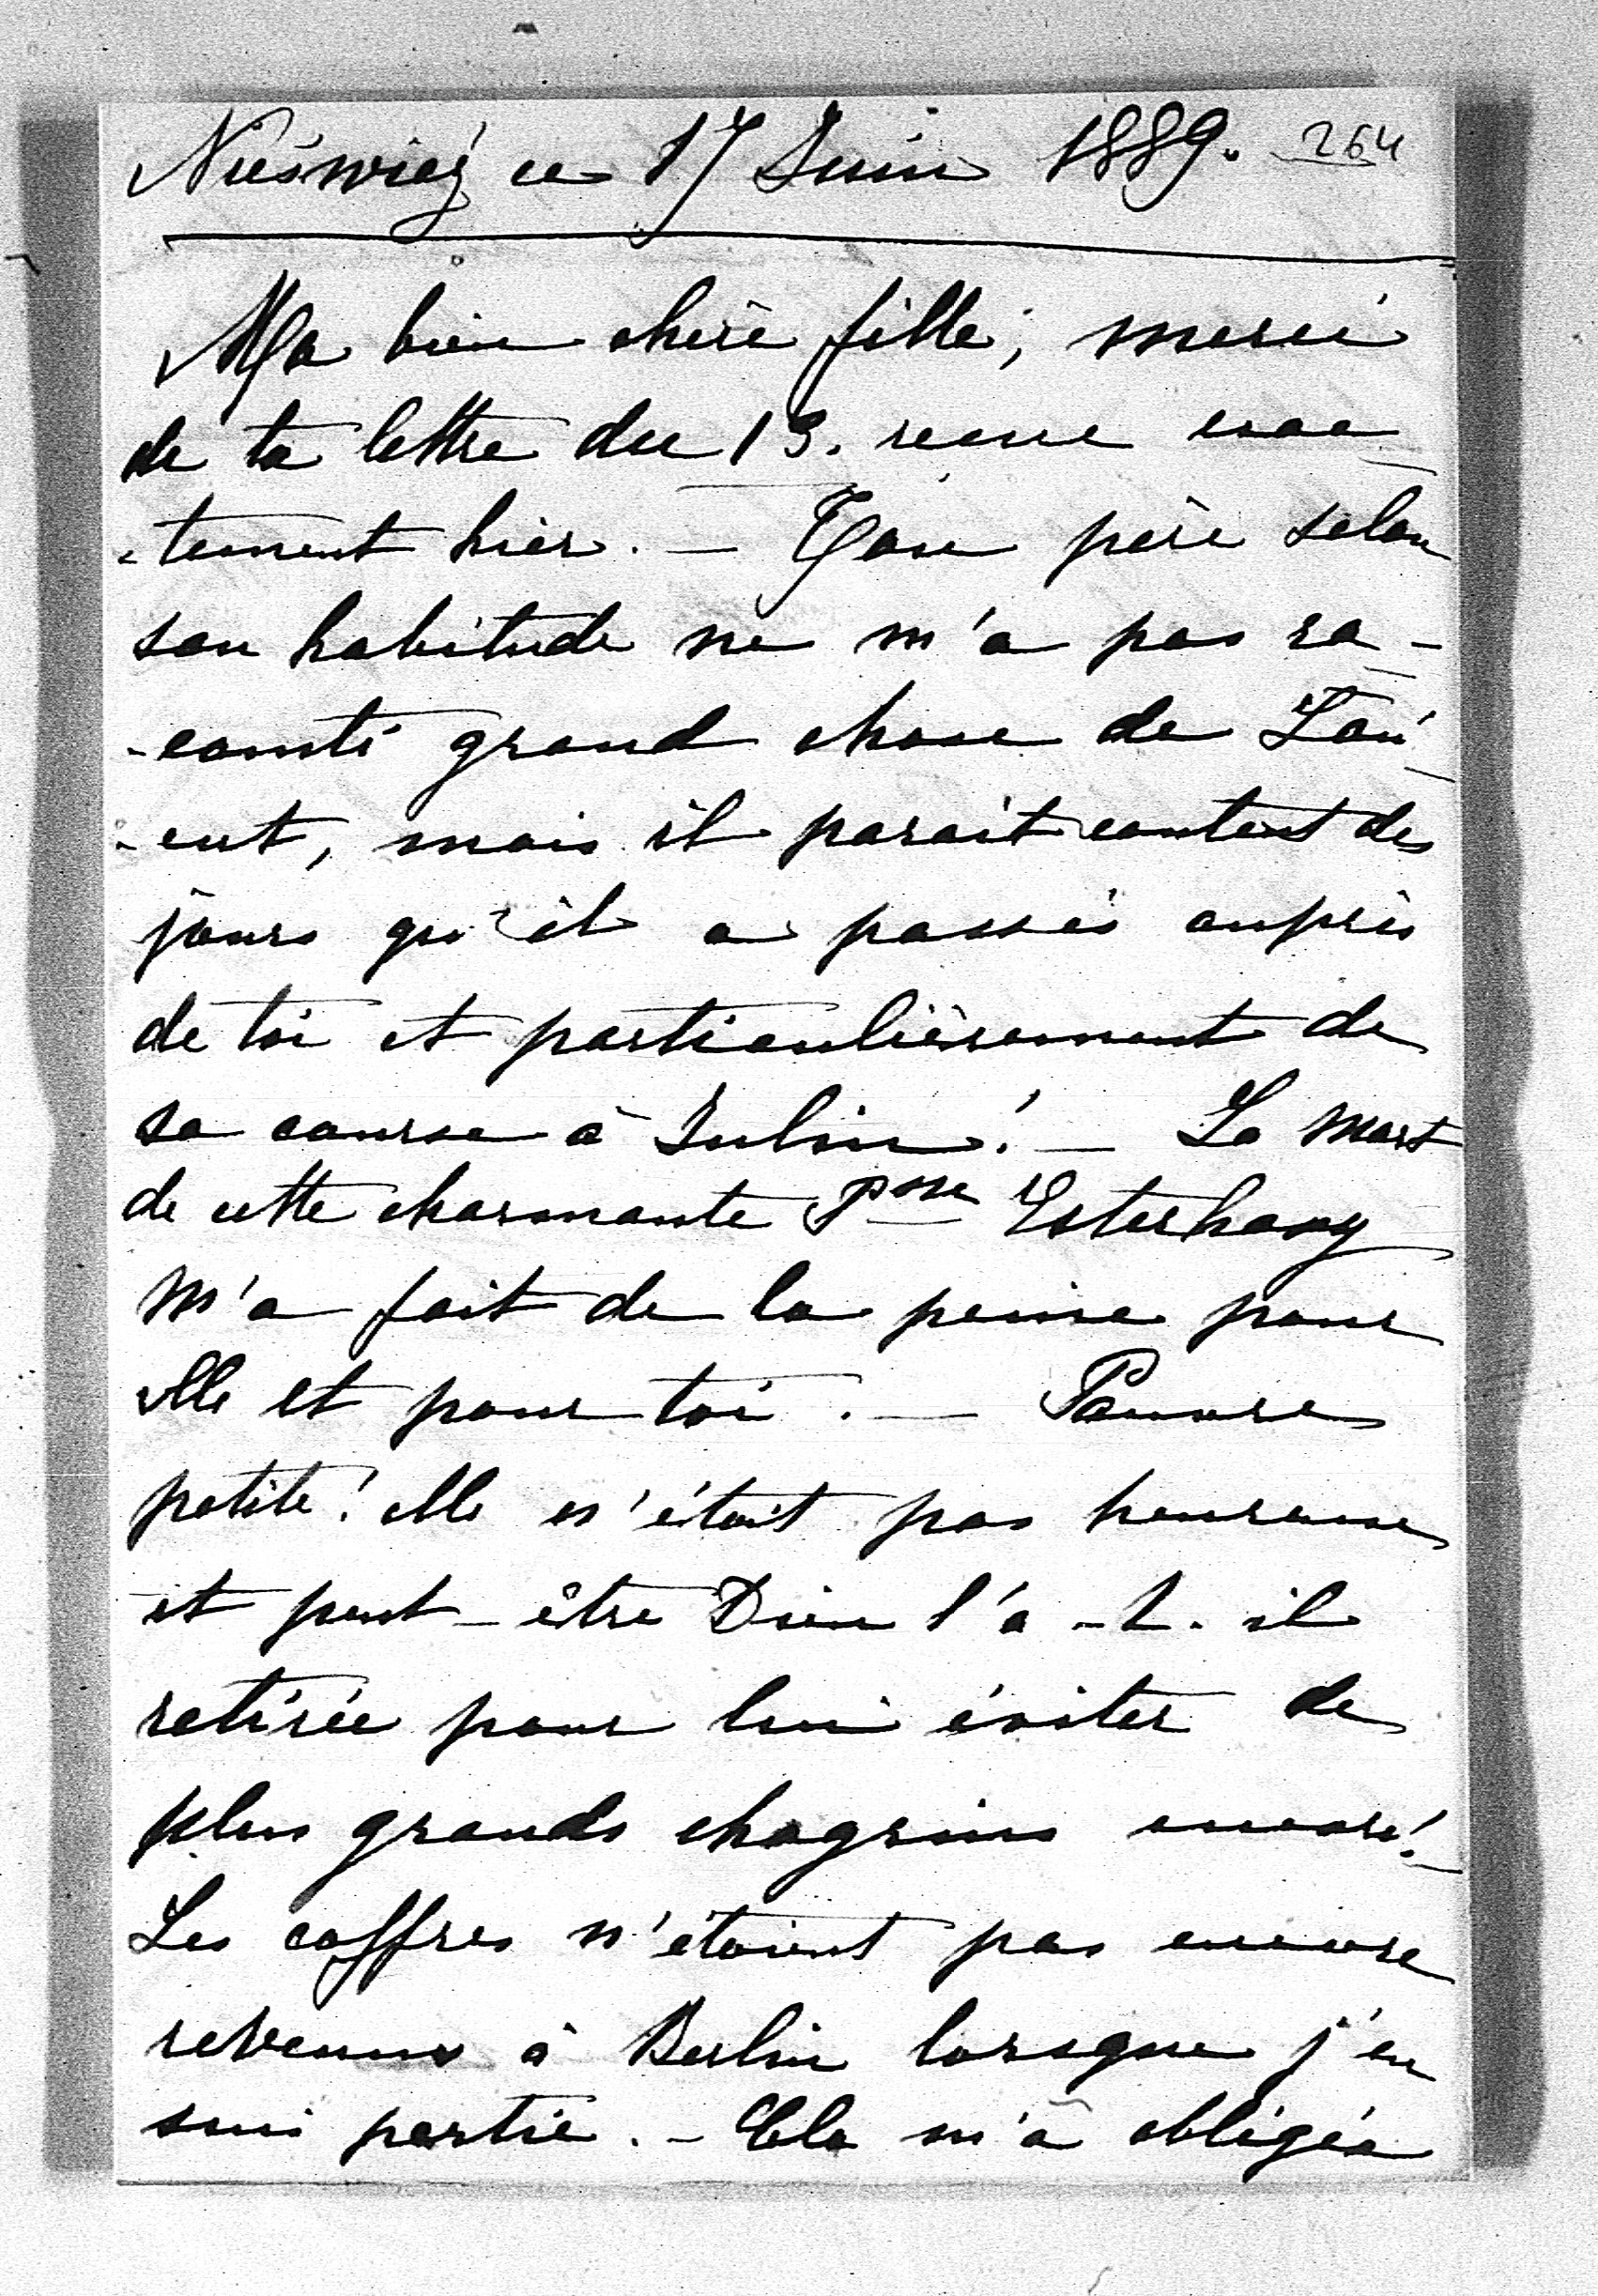 Nieśwież ce 17 Juin 1889. 264
Ma bien chère fille, merci
de ta lettre du 13. recue exac
-tement hier. — Ton père selon
son habitude ne m'a pas ra-
-conté grand chose de Łań
-cut, mais il parait content des
jours qu'il a passés auprès
de toi et particulièrement de
sa course à Julin! — La mort
de cette charmante Psse Esterhazy
m'a fait de la peine pour
elle et pour toi. — Pauvre
petite! elle n'était pas heureuse
et peut-être Dieu l'a-t-il
retirée pour lui éviter de
plus grands chagrins encore! —
Les coffres n'étaient pas encore
revenus à Berlin lorsque j'en
suis partie. — Cela m'a obligée